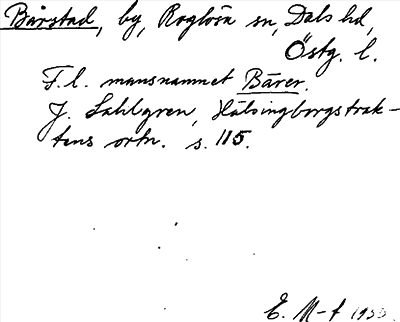 Bårstad, by, Roglösa sn, Dals hd,
Östg. l.
F. l. mansnamnet Bārer.
J. Sahlgren, Hälsingborgstrak-
tens ortn. s. 115.
E. M-t